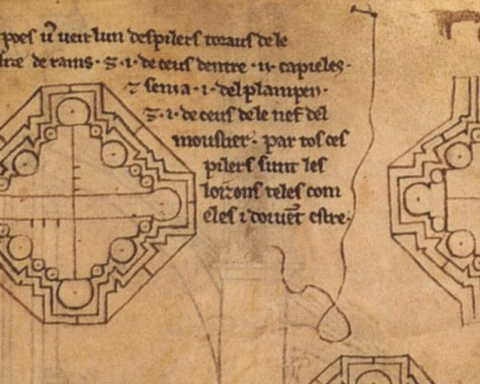 poes ũ veir lun des pilers toraus de le
de rains · ⁊ · i · de ceus dentre · ii · capieles ·
⁊ seni a · i · del plain pen ·
⁊ · i · de ceus de le nef del
moustier · par tos ces
pilers sunt les
loizons teles com
eles i doivēt estre ·